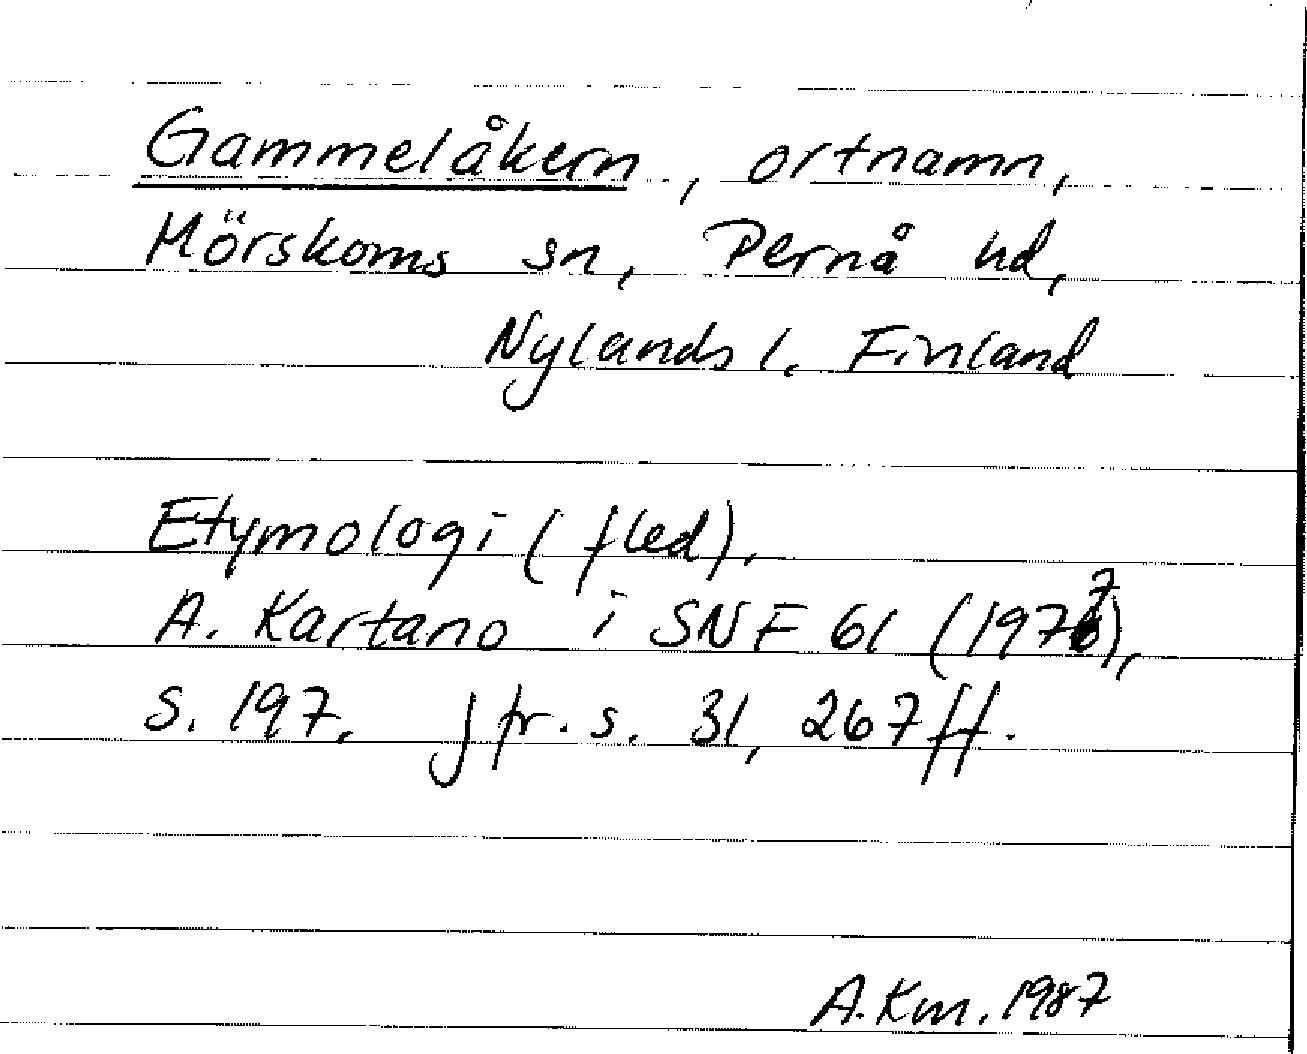 Gammelåkern, ortnamn,
Mörskoms sn, Pernå hd,
Nylands l. Finland
Etymologi (fled).
A. Kartano i SNF 61 (1977),
s. 197. Jfr. s. 31, 267 ff.
A. Km. 1987